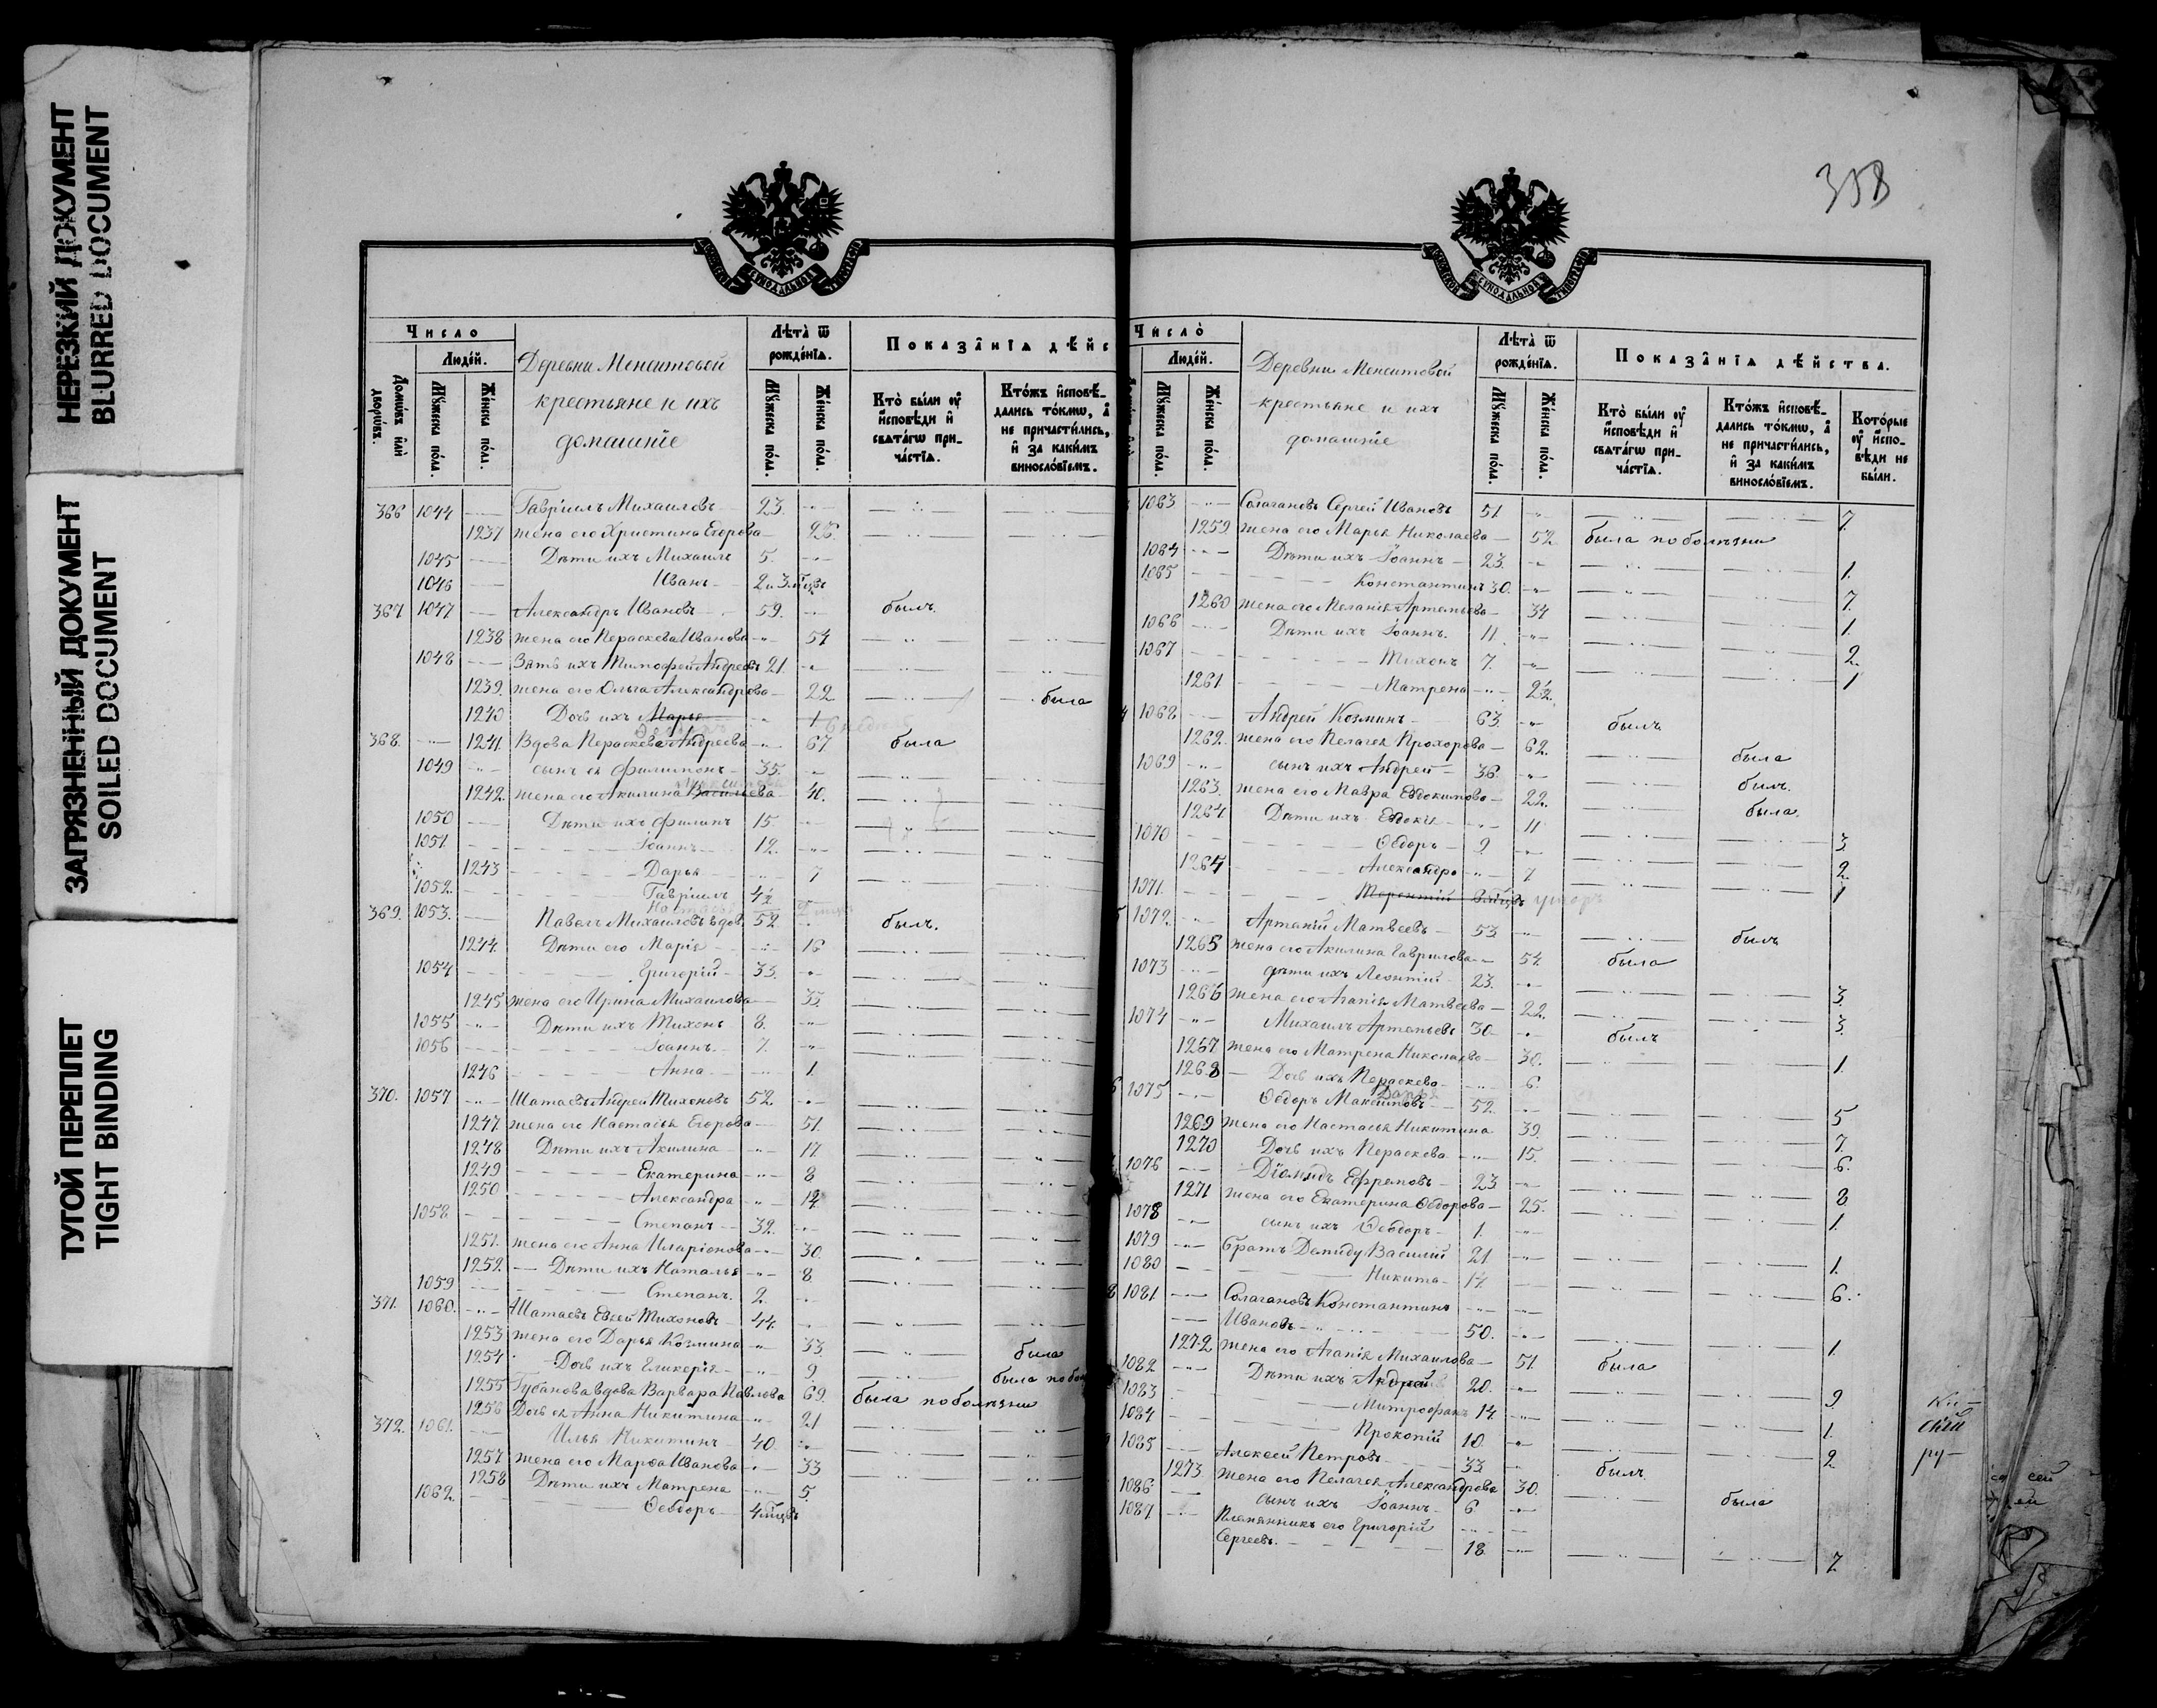 НЕРЕЗКИЙ ДОКУМЕНТ
BLURRED DOCUMENT
ЗАГРЯЗНЕННЫЙ ДОКУМЕНТ
SOILED DOCUMENT
ТУГОЙ ПЕРЕПЛЕТ
TIGHT BINDING
Число
Людей.
Домшвъ или дворшвъ.
Мꙋжеска пола.
Женска пола.
Деревни Менситовой
крестьяне и ихъ
домашніе
Лѣта ѿ рожденїѧ.
Мꙋжеска пола.
Женска пола.
Показанїѧ дѣйс
Кто были ꙋ исповѣди и свѧтагѡ причастїѧ.
Ктожъ исповѣдались токмѡ, а не причастились, и за какимъ винословїемъ.
366 1044 Гавріилъ Михаиловъ 23.
1237 жена его Христина Егорова 26.
1045 Дѣти ихъ Михаилъ 5.
1046 Иванъ 2 и 3 мѣцъ
367 1047 Александръ Ивановъ 59. былъ.
1238 жена его Пераскева Иванова 54
1048 Зять ихъ Тимофей Андреевъ 21.
1239. жена его Ольга Александрова 22 была
1240 Дочь ихъ Марья 1
368. 1241. Вдова Пераскева Андреева 67 была
1049 сынъ ея Филимонъ 35.
1242. жена его Акилина Васильева 40.
1050 Дѣти ихъ Филипъ 15
1051. Іоаннъ 12.
1243 Дарья 7
1052. Гавріилъ 4½
369. 1053. Павелъ Михаиловъ вдов 52 былъ.
1244. Дѣти его Марія 16
1054 Григорій 33.
1245 жена его Ирина Михаилова 35
1055 Дѣти ихъ Тихонъ 8.
1056 Іоаннъ 7.
1246 Анна 1.
370. 1057 Шатаевъ Андрей Тихоновъ 52.
1247 жена его Настасья Егорова 51.
1248 Дѣти ихъ Акилина 17
1249 Екатерина 8
1250 Александра 14
1058 Степанъ 32.
1251. жена его Анна Иларіонова 30.
1252. Дѣти ихъ Наталья 8
1059 Степанъ. 2.
371. 1060. Шатаевъ Евсей Тихоновъ 44.
1253 жена его Дарья Козмина 33 была
1254 Дочь ихъ Гликерія 9. была по бол
1255 Губанова вдова Варвара Павлова 69. была по болѣзни
1256 Дочь ея Анна Никитина 21
372. 1061. Илья Никитинъ 40
1257 жена его Марѳа Иванова 33
1258 Дѣти ихъ Матрена 5.
1062. Ѳеодоръ 4 мѣцъ
358
Число
Людей.
Мꙋжеска пола.
Женска пола.
Деревни Менситовой
крестьяне и ихъ
домашніе
Лѣта ѿ рожденїѧ.
Мꙋжеска пола.
Женска пола.
Показанїѧ дѣйства.
Кто были ꙋ исповѣди и свѧтагѡ причастїѧ.
Ктожъ исповѣдались токмѡ, а не причастились, и за какимъ винословїемъ.
Которые ꙋ исповѣди не были.
1063 Салагановъ Сергей Ивановъ 51. 7.
1259 жена его Марья Николаева 52 была по болѣзни
1064 Дѣти ихъ Іоаннъ 23. 1.
1065 Константинъ 30. 7.
1260 жена его Меланія Артемьева 34 1.
1066 Дѣти ихъ Іоаннъ. 11. 2.
1067 Тихонъ 7. 1
1261 Матрена 2½.
1068 Андрей Козминъ 63. былъ
1262. жена его Пелагея Прохорова 62. была
1069 сынъ ихъ Андрей 36. былъ.
1263. жена его Мавра Евдокимова 22. была.
1264 Дѣти ихъ Евдокія 11 3.
1070 Ѳеодоръ 9 2.
1264 Александра 7 1
1071. Терентій умеръ
1072. Артамій Матвеевъ 53 былъ
1265 жена его Акилина Гаврилова 54. была
1073 дѣти ихъ Леонтій 23. 3.
1266 жена его Агапія Матвеева 22. 3.
1074 Михаилъ Артемьевъ 30. былъ
1267 жена его Матрена Николаева 30. 1.
1268 Дочь ихъ Пераскева 6.
1075 Ѳедоръ Максимовъ 52. 5
1269 жена его Настасья Никитина 39. 7.
1270 Дочь ихъ Пераскева 15. 6.
1076 Діомидъ Ефремовъ 23 8
1271 жена его Екатерина Ѳедорова 25. 1.
1078 сынъ ихъ Ѳеодоръ 1.
1079 Братъ Демиду Василій 21 1.
1080 Никита 14 6.
1081 Салагановъ Константинъ
Ивановъ 50. 1.
1272 жена его Агапія Михаилова 51. была
1082 Дѣти ихъ Андрей 20. 9
1083 Митрофанъ 14. 1.
1084 Прокопій 10. 2
1085 Алексей Петровъ 33 былъ
1273 жена его Пелагея Александрова 30. была
1086 сынъ ихъ Іоаннъ 6
1087 Племянникъ его Григорій
Сергеевъ. 18. 7